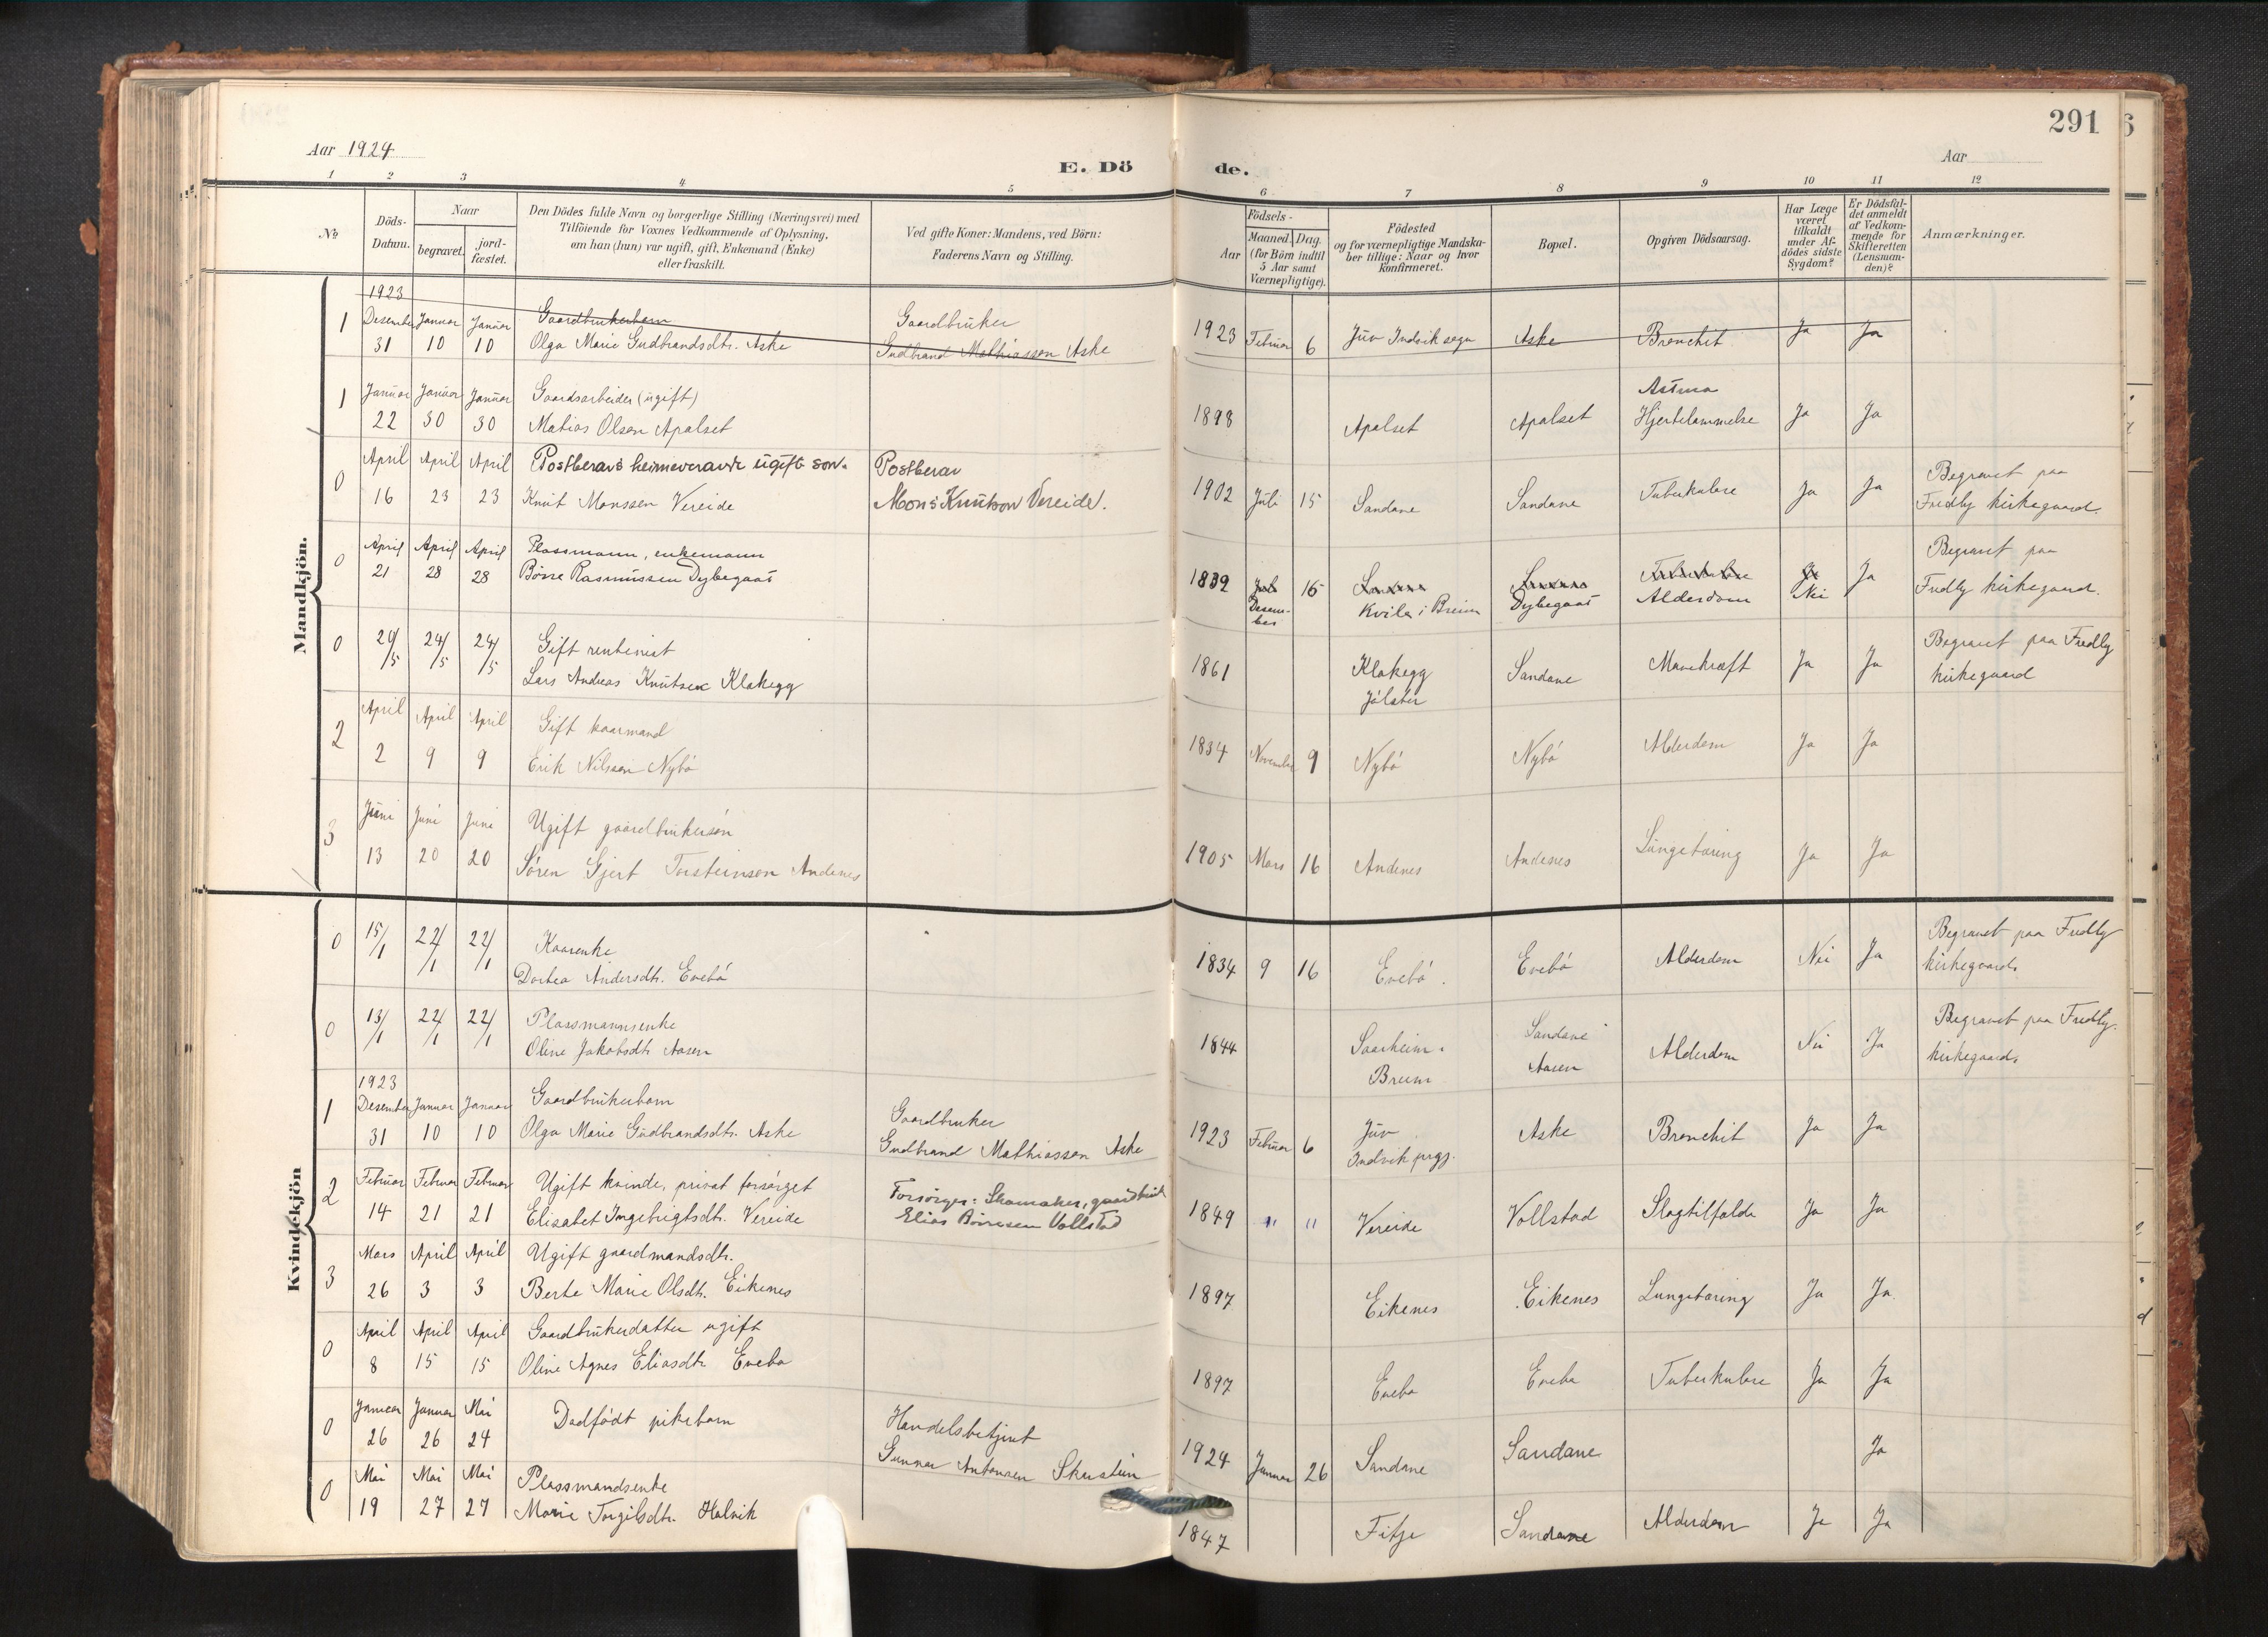 291
Aar 1924
Aar
E. Dö
de.
1 2 3 4 5 6 7 8 9 10 11 12
№
Döds-
Datum.
Naar
begravet.
jord-
fæstet.
Den Dödes fulde Navn og borgerlige Stilling (Næringsvei) med
Tilföiende for Voxnes Vedkommende af Oplysning,
om han (hun) var ugift, gift, Enkemand (Enke)
eller fraskilt.
Ved gifte Koner: Mandens, ved Börn:
Faderens Navn og Stilling.
Födsels-
Aar
Maaned. Dag.
(for Börn indtil
5 Aar samt
Værnepligtige).
Födested
og for værnepligtige Mandska-
ber tillige: Naar og hvor
konfirmeret.
Bopæl.
Opgiven Dödsaarsag.
Har Læge
været
tilkaldt
under Af-
dödes sidste
Sygdom?
Er Dödsfal-
det anmeldt
af Vedkom-
mende for
Skifteretten
(Lensman-
den)?
Anmærkninger.
Mandkjön.
1923
1 Desember Januar Januar Gaardbrukerbarn Gaardbruker
31 10 10 Olga Marie Gudbrandsdtr. Aske Gudbrand Mathiassen Aske 1923 Februar 6 Juv Indvik sogn Aske Bronchit Ja Ja
1 Januar Januar Januar Gaardsarbeider (ugift) Astma
22 30 30 Matias Olsen Apalset 1898 Apalset Apalset Hjertelammelse Ja Ja
0 April April April Postberars heimeverande ugift son. Postberar Begravet paa
16 23 23 Knut Monssen Vereide Mons Knutson Vereide. 1902 Juli 15 Sandane Sandane Tuberkulose Ja Ja Fredly kirkegaard.
0 April April April Plassmann, enkemann Begravet paa
21 28 28 Börre Rasmussen Dybegaat 1839 Juli 16 Sandane Sandane Tuberkulose Ja Ja Fredly kirkegaard.
Desem-
ber Kvile i Breim Dybegaat Alderdom Nei
0 20/5 24/5 24/5 Gift rentenist Begravet paa Fredly
Lars Andreas Knutsen Klakegg 1861 Klakegg Sandane Mavekræft Ja Ja kirkegaard
Jölster
2 April April April Gift kaarmand
2 9 9 Erik Nilssen Nybö 1834 November 9 Nybö Nybö Alderdom Ja Ja
3 Juni Juni Juni Ugift gaardbrukersön
13 20 20 Sören Gjert Torsteinson Andenes 1905 Mars 16 Andenes Andenes Lungetæring Ja Ja
Kvindekjön
0 15/1 22/1 22/1 Kaarenke Begravet paa Fredly
Dortea Andersdtr. Evebö 1834 9 16 Evebö. Evebö Alderdom Nei Ja kirkegaard.
0 13/1 22/1 22/1 Plassmannsenke Sandane Begravet paa Fredly.
Oline Jakobsdtr. Aasen 1844 Saarheim. Aasen Alderdom Nei Ja kirkegaard.
Breim
1923
1 Desember Januar Januar Gaardbrukerbarn Gaardbruker
31 10 10 Olga Marie Gudbrandsdtr. Aske Gudbrand Mathiassen Aske 1923 Februar 6 Juv Aske Bronchit Ja Ja
Indvik prgj.
2 Februar Februar Februar Ugift kvinde, privat forsörget Forsörger: Skomaker, gaardbruk
14 21 21 Elisabet Ingebrigtsdtr. Vereide Elias Börresen Vollstad 1849 " " Vereide Vollstad Slagtilfælde Ja Ja
3 Mars April April Ugift gaardmandsdtr.
26 3 3 Berte Marie Olsdtr. Eikenes 1897 Eikenes Eikenes Lungetæring Ja Ja
0 April April April Gaardbrukerdatter ugift
8 15 15 Oline Agnes Eliasdtr. Evebö 1897 Evebö Evebö Tuberkulose Ja Ja
0 Januar Januar Mai Dødfödt pikebarn Handelsbetjent
26 26 24 Gunnar Antonsen Skarstein 1924 Januar 26 Sandane Sandane Ja
0 Mai Mai Mai Plassmandsenke
19 27 27 Marie Torgilsdtr. Holvik 1847 Fitje Sandane Alderdom Ja Ja